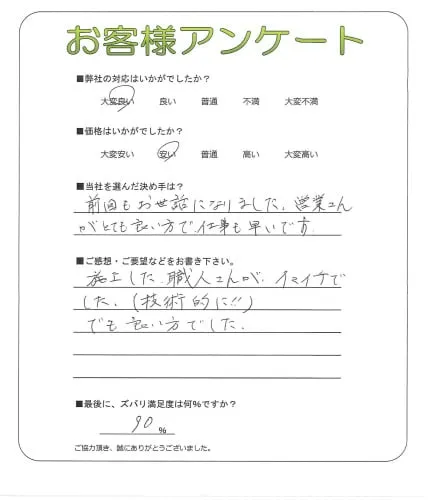 お客様アンケート
■弊社の対応はいかがでしたか?
大変良い 良い 普通 不満 大変不満
■価格はいかがでしたか?
大変安い 安い 普通 高い 大変高い
■当社を選んだ決め手は?
前回もお世話になりました、営業さん
がとても良い方で、仕事も早いです
■ご感想・ご要望などをお書き下さい。
施工した職人さんが、イマイチで
した、(技術的に!!)
でも良い方でした。
■最後に、ズバリ満足度は何%ですか?
90 %
ご協力頂き、誠にありがとうございました。